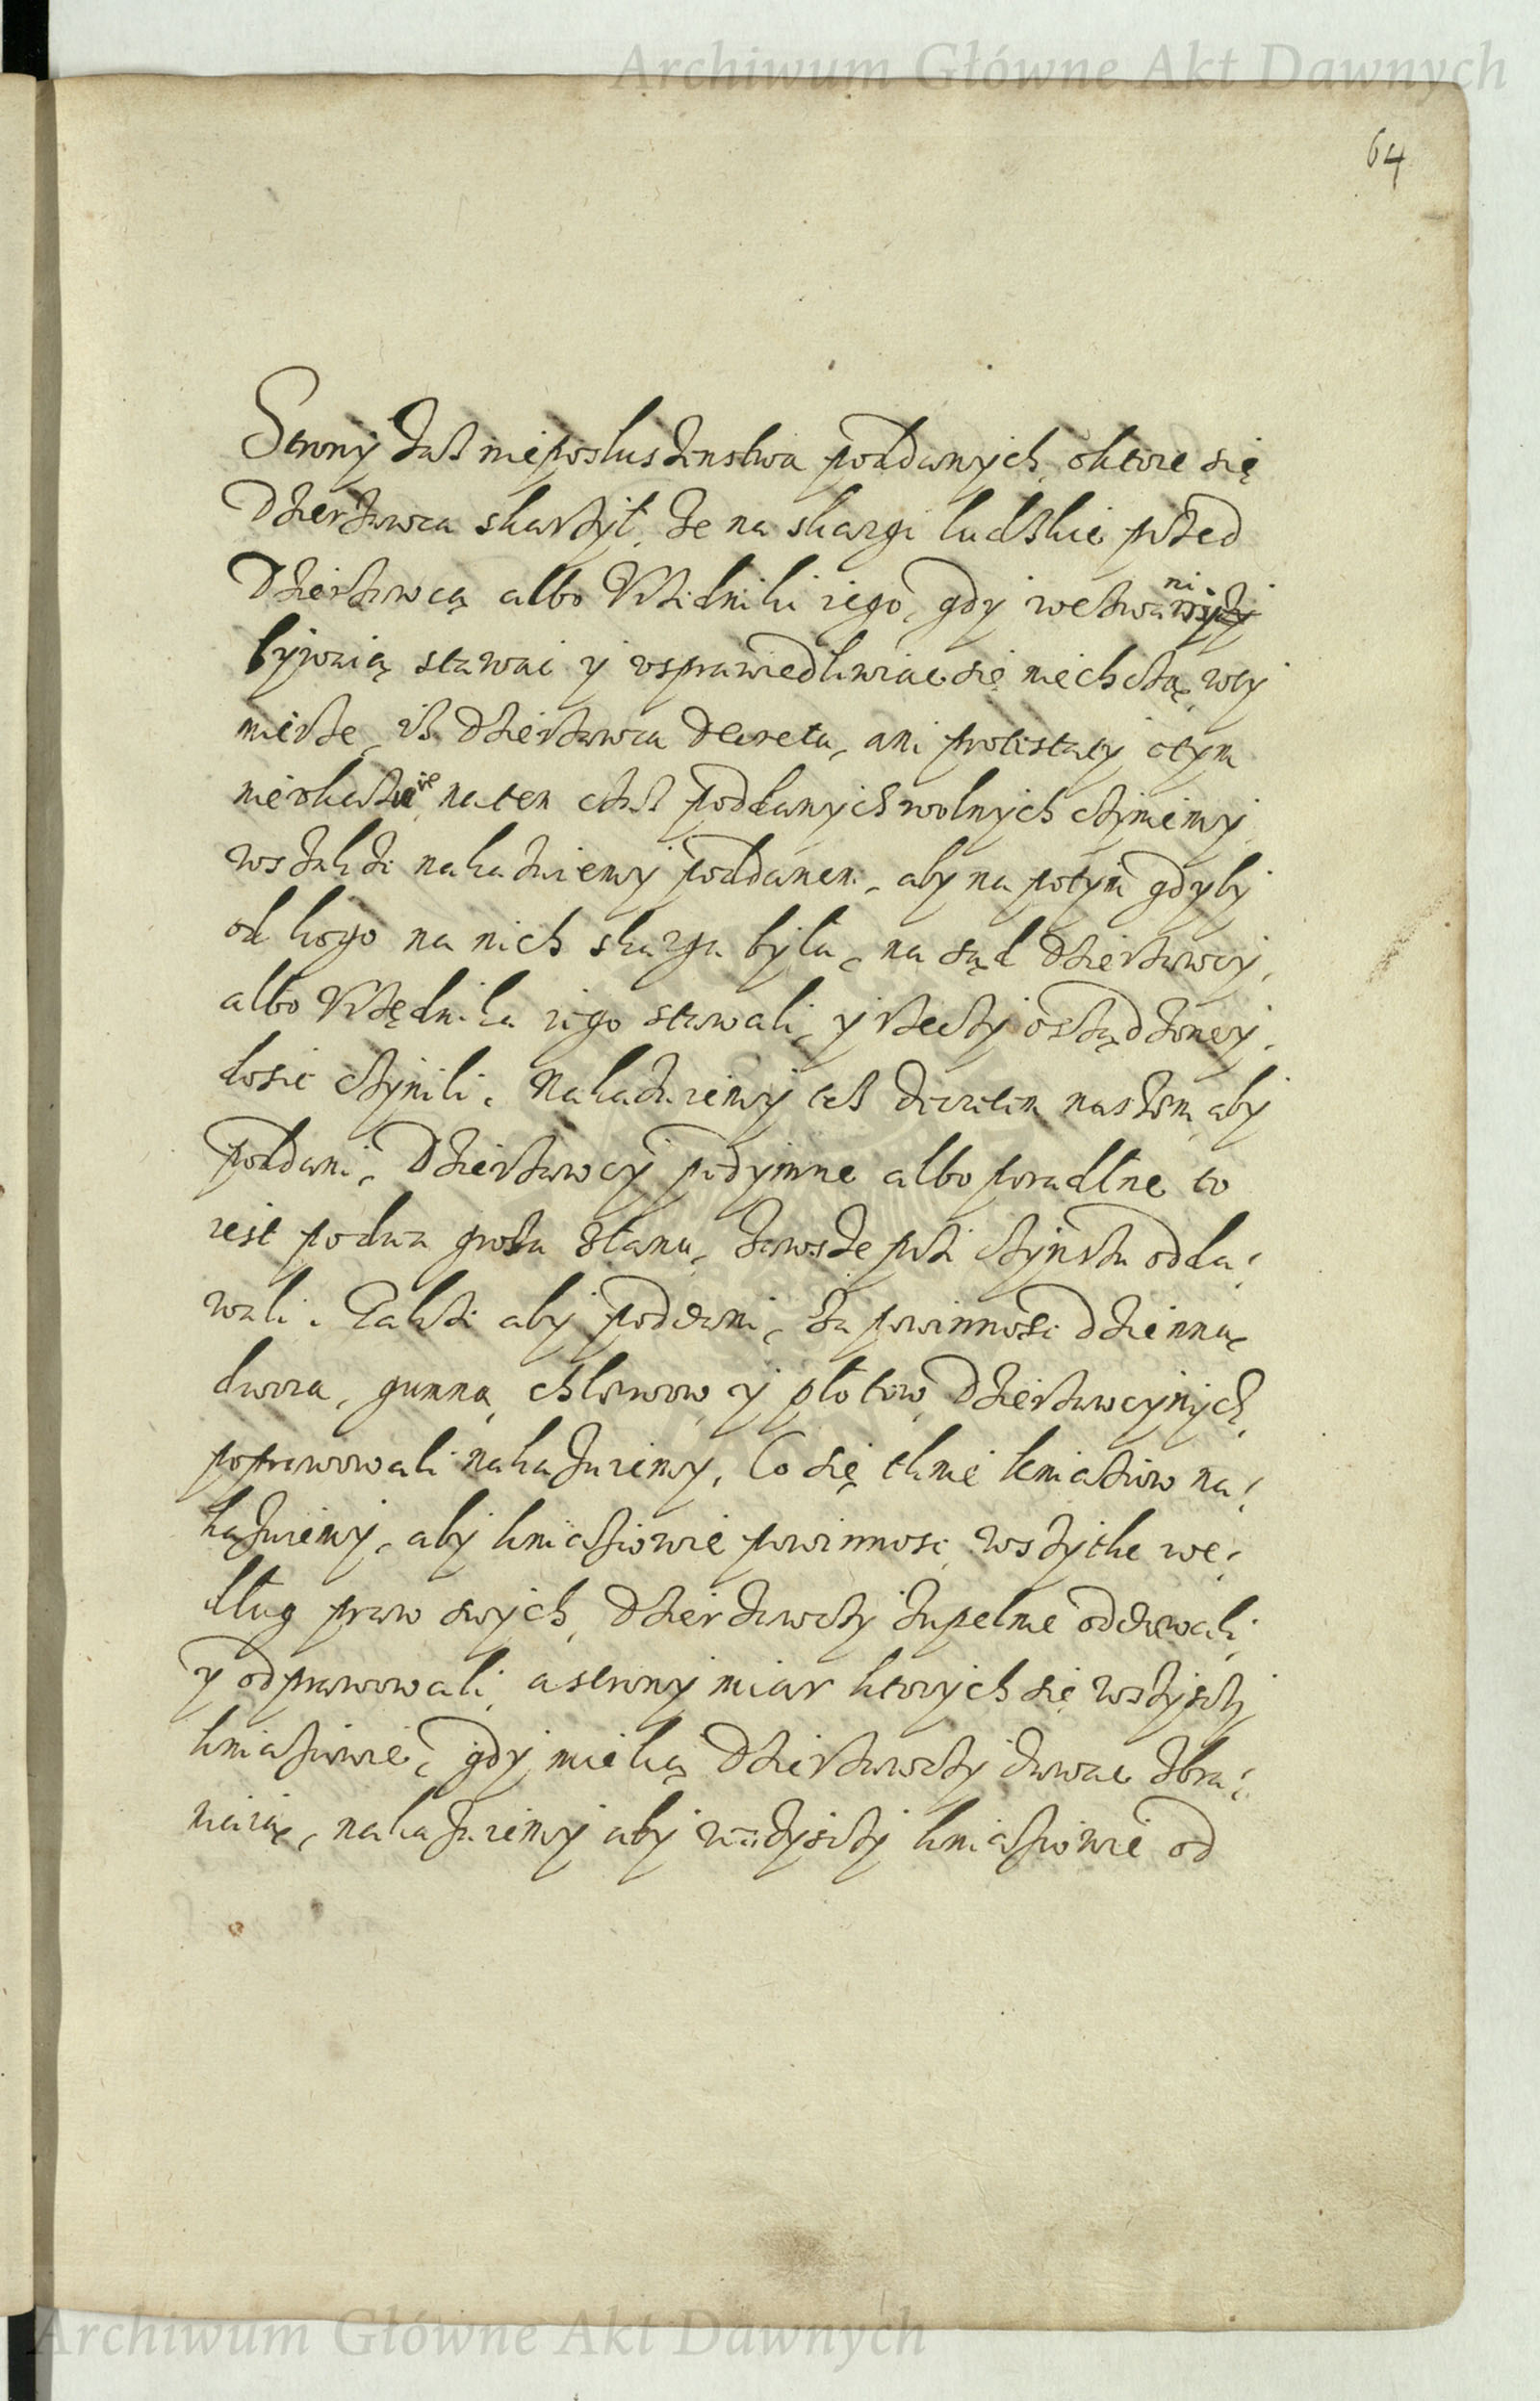 Archiwum Główne Akt Dawnych
64
Strony zaś nieposłuszenstwa poddanych, oktore się
Dzierżawca skarżył, że na skargi ludzkie przed
Dzierżawcą albo Vrzędniki iego, gdy wezwani
bywaią stawać y vsprawiedliwiac się niechczą, wey
mierze, iż Dzierżawca Decretu, ani protestacy otym
nieokazuie, naten czas poddanych wolnych czyniemy
wszakże nakazuiemy poddanem, aby na potym gdyby
od kogo na nich skarga była, na sąd Dzierżawcy,
albo Vrzędnika iego stawali, y rzeczy osądzoney,
dosić czynili. Nakazuiemy też decretem naszem, aby
poddani, Dzierżawcy podymne albo poradlne to
iest po dwa grosza z łanu, zawsze przi czynszu odda:
wali. Takze aby poddani, za powinność dzienną,
dwora, gumna, chlewow, y płotow Dzierżawcynych,
poprawowali nakazuiemy. Co się tknie kniaziow na:
kazuiemy, aby kniaziowie powinności wszytkie we:
dług praw swych, Dzierżawczy zupełnie oddawali,
y odprawowali, a strony miar ktorych się wszyscy
kniaziowie, gdy mielą Dzierżawczy dawac zbra:
niaią, nakazuiemy aby wszyscy kniaziowie od
Archiwum Główne Akt Dawnych